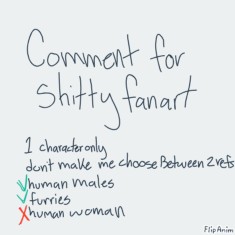 Comment for
shitty fanart
1 character only
dont make me choose Between 2 refs
human males
furries
human woman
FlipAnim